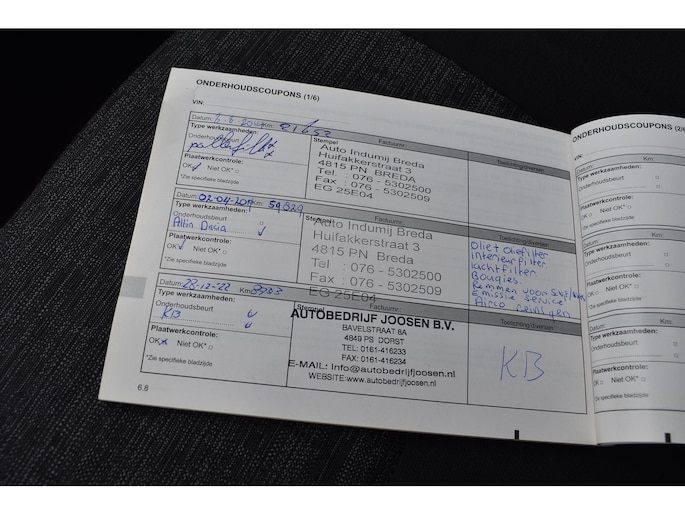 ONDERHOUDSCOUPONS (1/6)
VIN:
Datum: Km: 21652
Type werkzaamheden:
Onderhoudsbeurt
Plaatwerkcontrole:
OK Niet OK*
*Zie specifieke bladzijde
Stempel Factuurnr.
Auto Indumij Breda
Huifakkerstraat 3
4815 PN BREDA
Tel : 076 - 5302500
Fax : 076 - 5302509
EG 25E04
Toelichting/diversen
Datum: Km 59829
Type werkzaamheden:
Onderhoudsbeurt
Plaatwerkcontrole:
OK Niet OK*
*Zie specifieke bladzijde
Stempel Factuurnr.
Auto Indumij Breda
Huifakkerstraat 3
4815 PN Breda
Tel : 076 - 5302500
Fax : 076 - 5302509
EG 25E04
Toelichting/diversen
Olie+ Oliefilter
interieurfilter
luchtfilter
Bougies
Remmen voor
Emissie service
Datum: 28-12-22 Km
Type werkzaamheden:
Onderhoudsbeurt
KB
Plaatwerkcontrole:
OK Niet OK*
*Zie specifieke bladzijde
Stempel Factuurnr.
AUTOBEDRIJF JOOSEN B.V.
BAVELSTRAAT 8A
4849 PS DORST
TEL: 0161-416233
FAX: 0161-416234
E-MAIL: Info@autobedrijfjoosen.nl
WEBSITE:www.autobedrijfjoosen.nl
Toelichting/diversen
KB
6.8
ONDERHOUDSCOUPONS (2/
VIN:
Datum: Km
Type werkzaamheden:
Onderhoudsbeurt
Plaatwerkcontrole:
OK Niet OK*
*Zie specifieke bladzijde
Datum: Km
Type werkzaamheden:
Onderhoudsbeurt
Plaatwerkcontrole:
OK Niet OK*
*Zie specifieke bladzijde
Datum: Km
Type werkzaamheden:
Onderhoudsbeurt
Plaatwerkcontrole:
OK Niet OK*
*Zie specifieke bladzijde